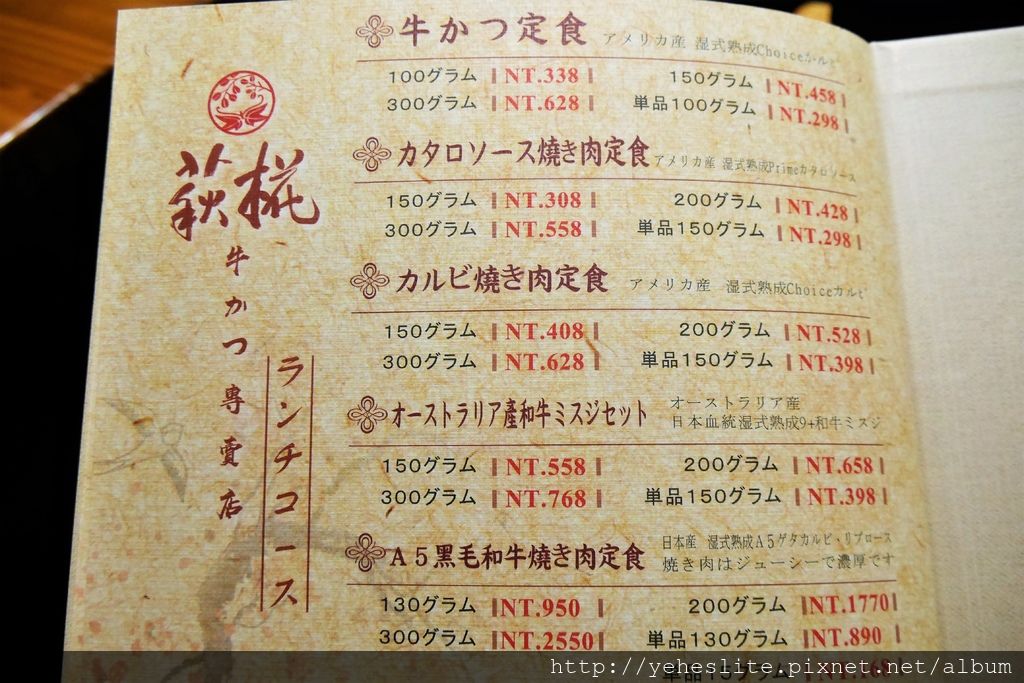 萩椛
牛かつ專賣店
ランチコース
牛かつ定食 アメリカ産 湿式熟成Choiceカルビ
100グラム NT.338 150グラム NT.458
300グラム NT.628 単品100グラム NT.298
カタロソース燒き肉定食 アメリカ産 湿式熟成Primeカタロソース
150グラム NT.308 200グラム NT.428
300グラム NT.558 単品150グラム NT.298
カルビ燒き肉定食 アメリカ産 湿式熟成Choiceカルビ
150グラム NT.408 200グラム NT.528
300グラム NT.628 単品150グラム NT.398
オーストラリア產和牛ミスジセット オーストラリア産
日本血統湿式熟成9+和牛ミスジ
150グラム NT.558 200グラム NT.658
300グラム NT.768 単品150グラム NT.398
A5黒毛和牛燒き肉定食 日本産 湿式熟成A5ゲタカルビ・リブロース
焼き肉はジューシーで濃厚です
130グラム NT.950 200グラム NT.1770
300グラム NT.2550 単品130グラム NT.890
http://yeheslite.pixnet.net/album